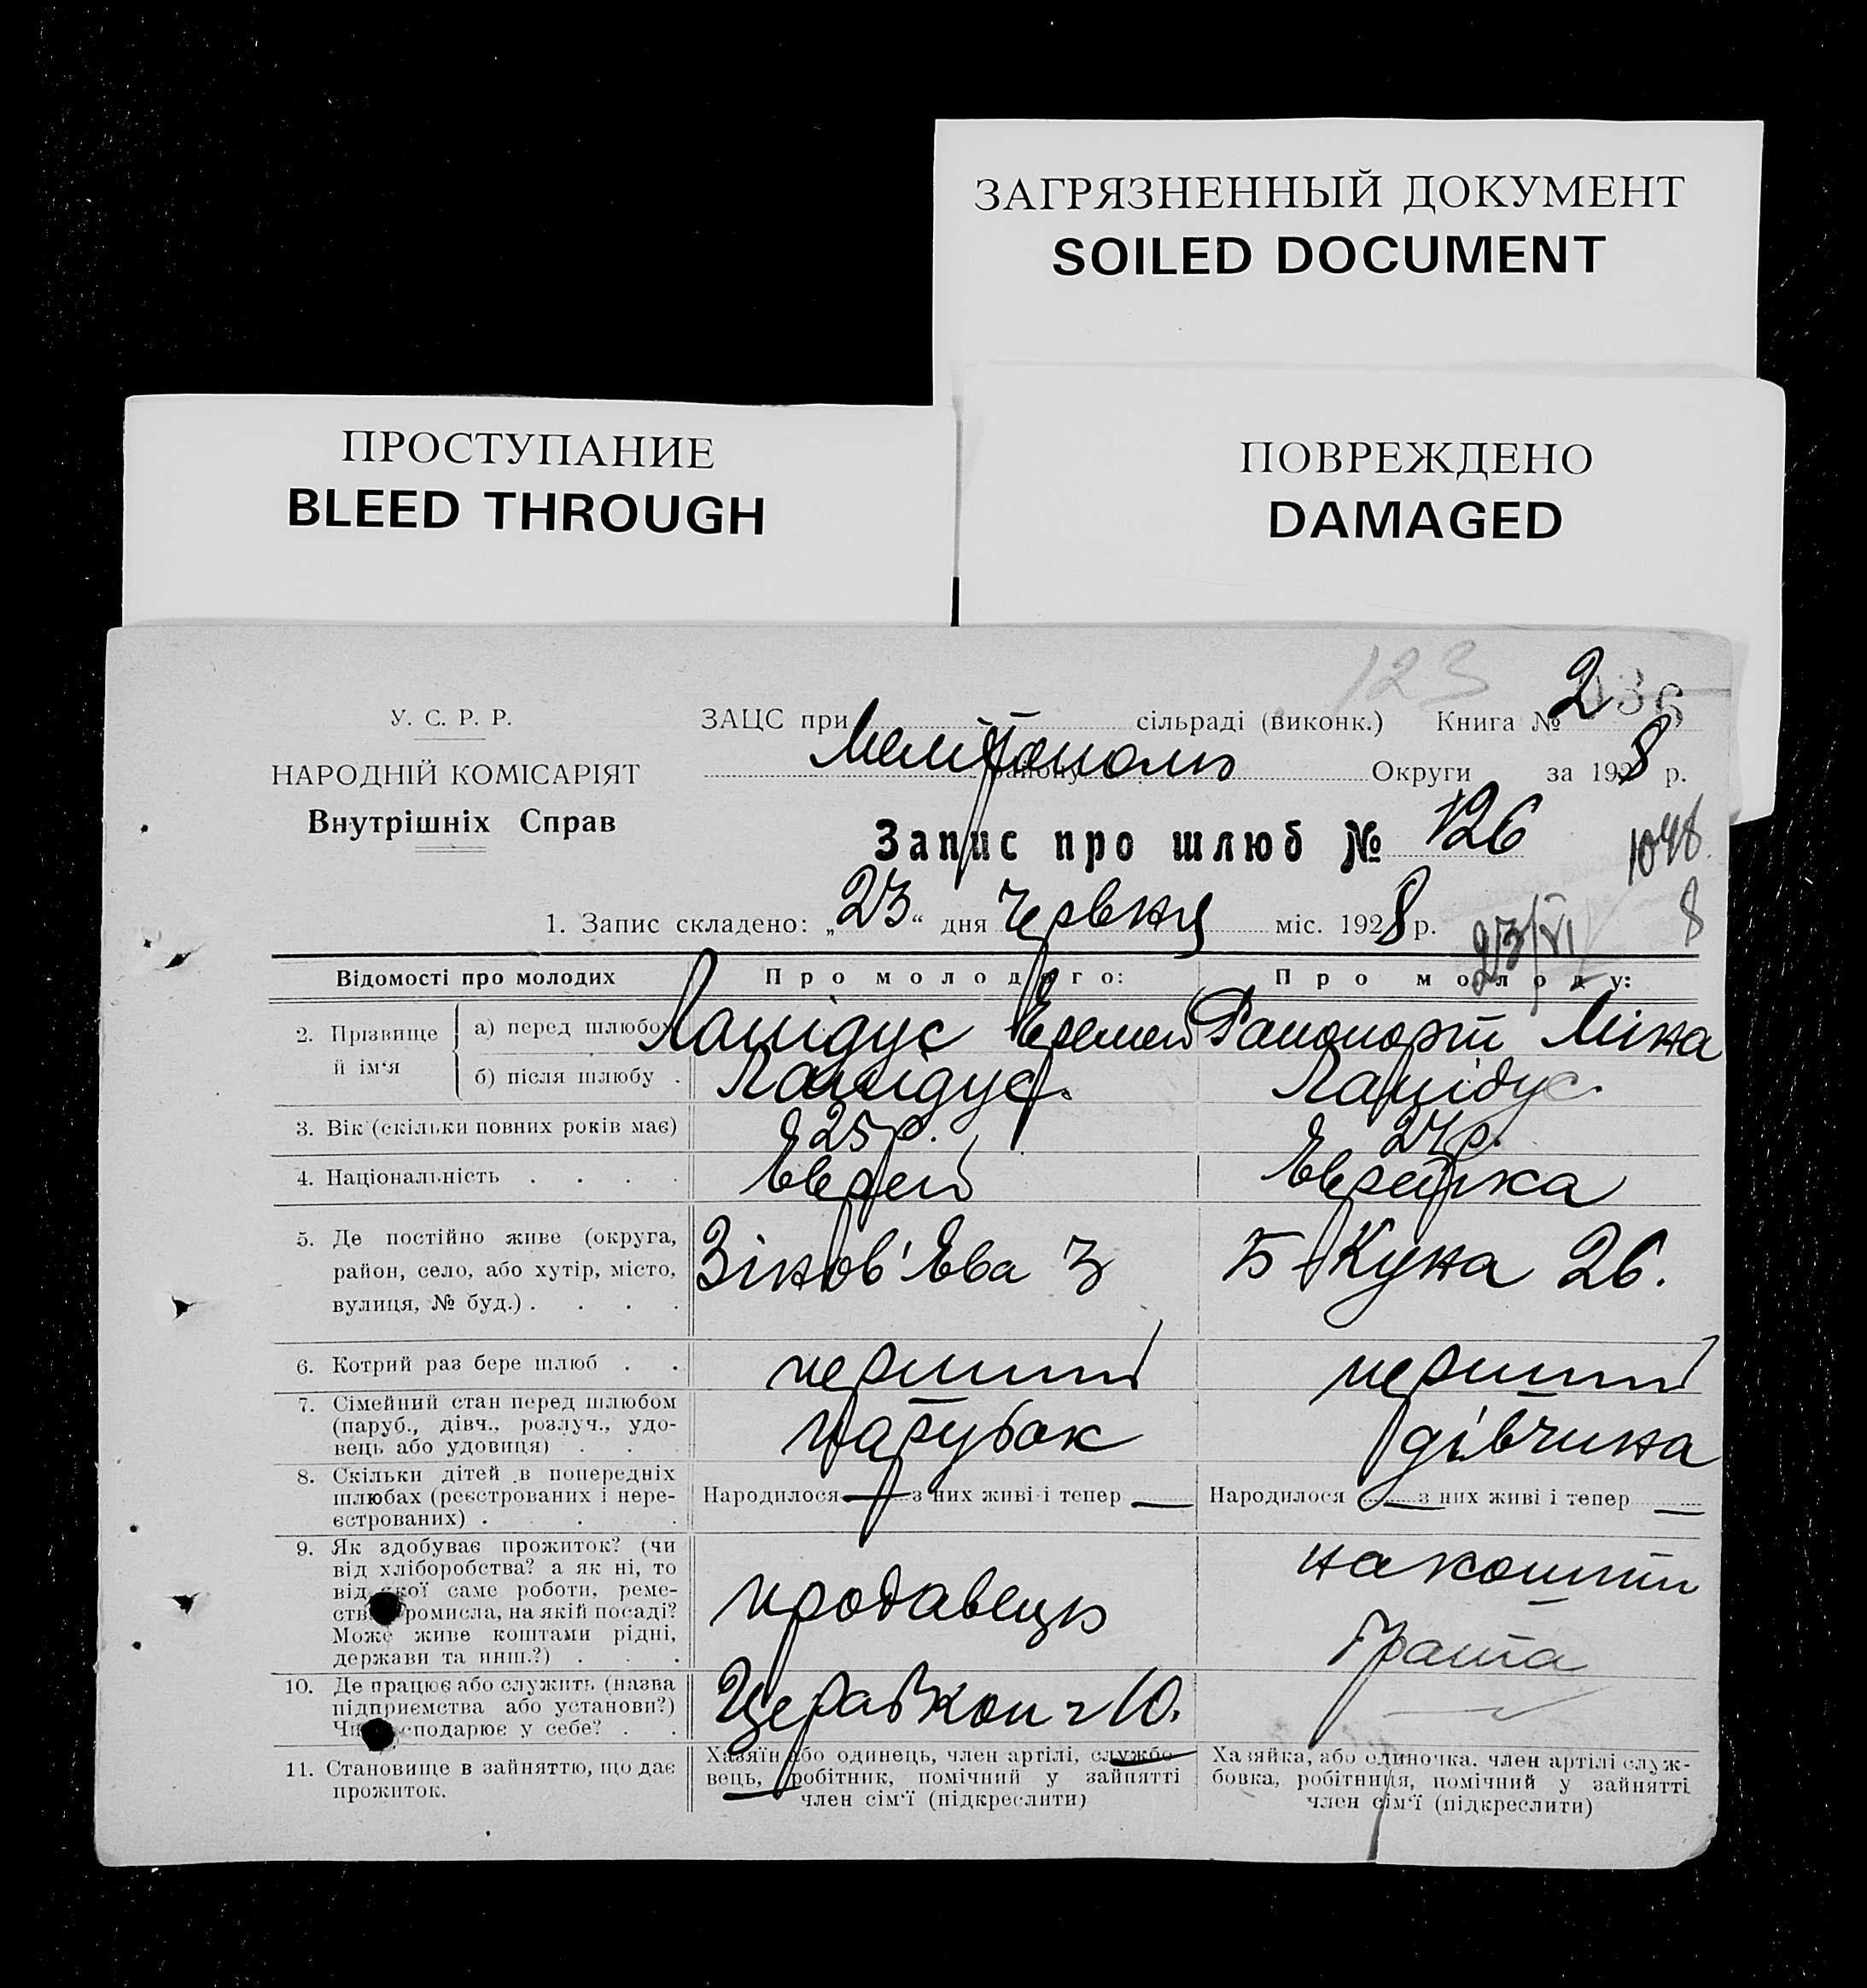 ЗАГРЯЗНЕННЫЙ ДОКУМЕНТ
SOILED DOCUMENT
ПРОСТУПАНИЕ
BLEED THROUGH
ПОВРЕЖДЕНО
DAMAGED
123
036
У. С. Р. Р.
НАРОДНІЙ КОМІСАРІЯТ
Внутрішніх Справ
ЗАЦС при сільраді (виконк.) Книга № 2
Мелітополь району Округи за 1928 р.
Запис про шлюб № 126
1048
8
1. Запис складено: „23“ дня червня міс. 1928 р.
23/VI
Відомості про молодих Про молодого: Про молоду:
2. Прізвище й ім‘я
а) перед шлюбом Лапідус Еремей Рапопорт Міна
б) після шлюбу . Лапідус. Лапідус.
3. Вік (скільки повних років має) 25 р. 24 р.
4. Національність . . . . Еврей Еврейка
5. Де постійно живе (округа, район, село, або хутір, місто, вулиця, № буд.) . . . . Зінов'Ева 3 Б Куна 26.
6. Котрий раз бере шлюб . . перший перший
7. Сімейний стан перед шлюбом (паруб., дівч., розлуч., удовець або удовиця) . . . парубок дівчина
8. Скільки дітей в попередніх шлюбах (реєстрованих і нереєстрованих) . . . . Народилося — з них живі і тепер — Народилося — з них живі і тепер —
9. Як здобуває прожиток? (чи від хліборобства? а як ні, то від якої саме роботи, ремества промисла, на якій посаді? Може живе коштами рідні, держави та инш.?) . . . продавець на кошти брата
10. Де працює або служить (назва підприємства або установи?) Чи господарює у себе? . .
11. Становище в зайняттю, що дає прожиток.
Хазяїн або одинець, член артілі, службовець, робітник, помічний у зайнятті член сім‘ї (підкреслити)
Хазяйка, або одиночка, член артілі службовка, робітниця, помічний у зайнятті член сім‘ї (підкреслити)